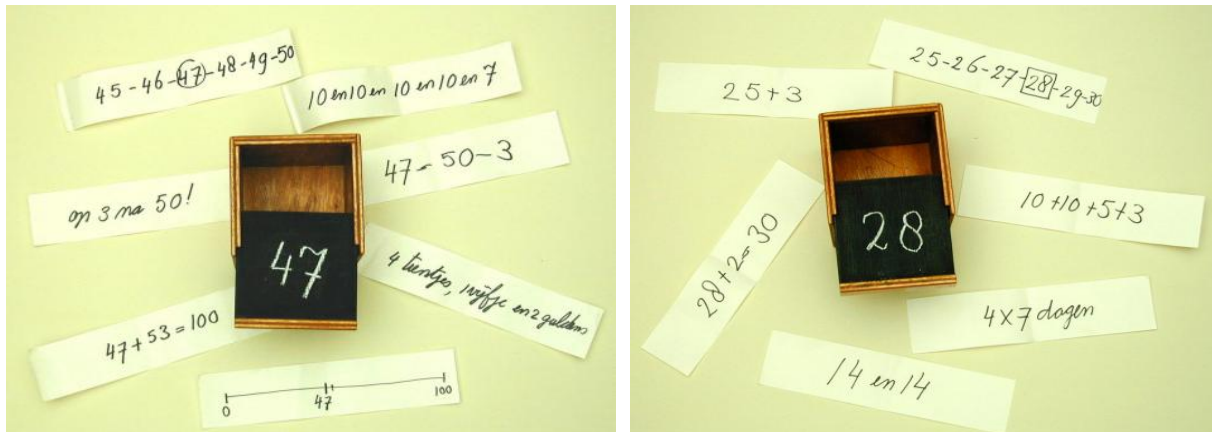 45 - 46 - 47 - 48 - 49 - 50
10 en 10 en 10 en 10 en 7
op 3 na 50!
47 = 50 - 3
47
4 tientjes, 1 vijfje en 2 guldens
47 + 53 = 100
0 47 100
25 - 26 - 27 - 28 - 29 - 30
25 + 3
28
10 + 10 + 5 + 3
28 + 2 = 30
4 x 7 dagen
14 en 14